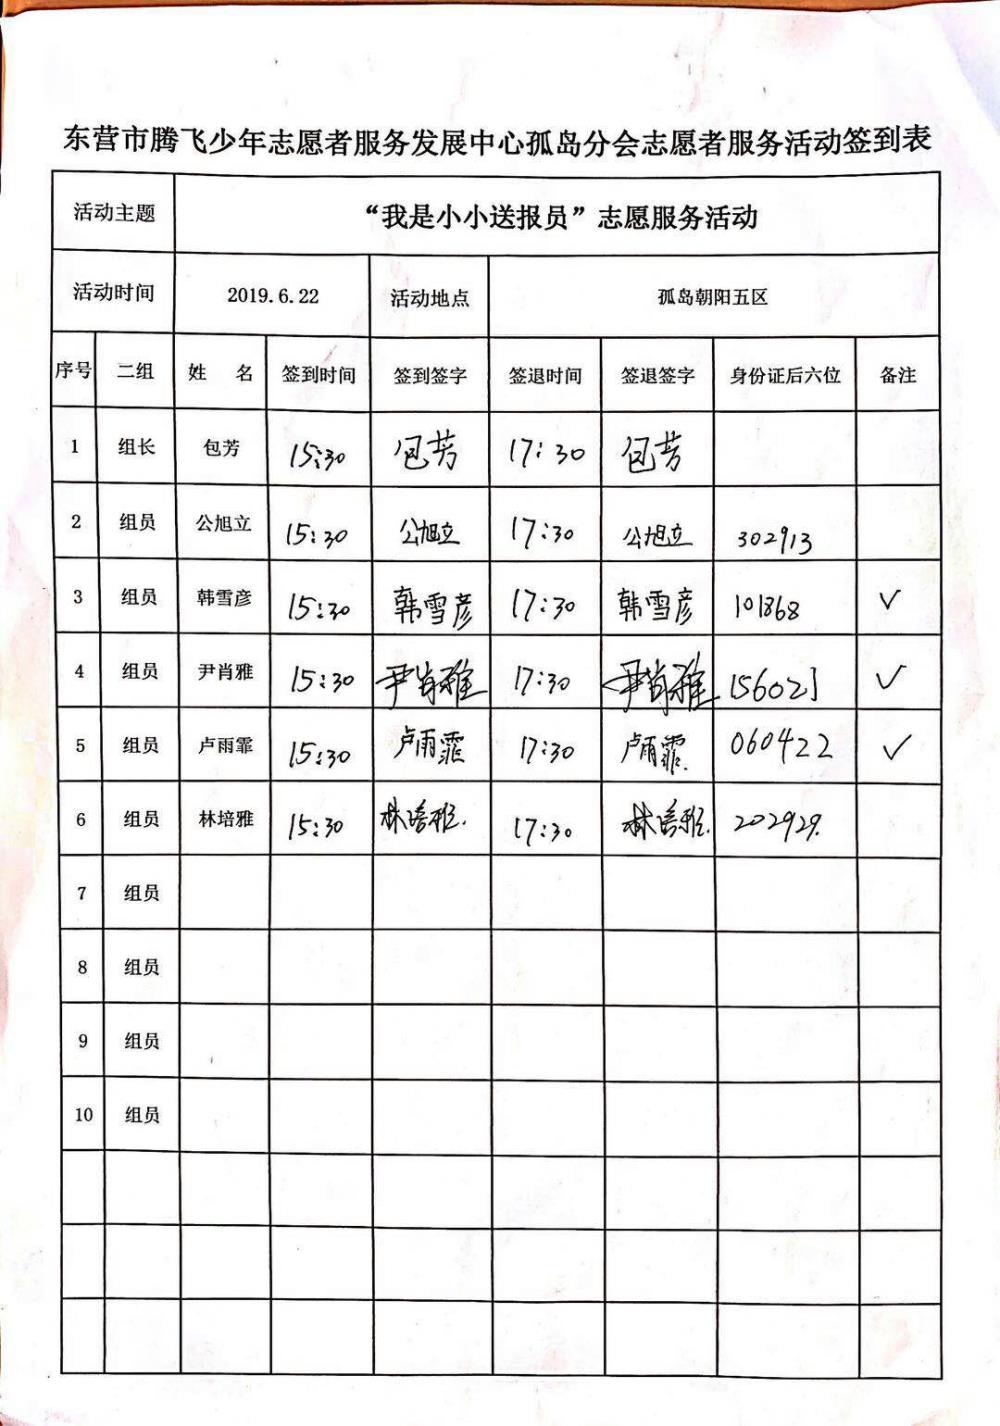 东营市腾飞少年志愿者服务发展中心孤岛分会志愿者服务活动签到表
活动主题 “我是小小送报员”志愿服务活动
活动时间 2019.6.22 活动地点 孤岛朝阳五区
序号 二组 姓 名 签到时间 签到签字 签退时间 签退签字 身份证后六位 备注
1 组长 包芳 15:30 包芳 17:30 包芳
2 组员 公旭立 15:30 公旭立 17:30 公旭立 302913
3 组员 韩雪彦 15:30 韩雪彦 17:30 韩雪彦 101868 ✓
4 组员 尹肖雅 15:30 尹肖雅 17:30 尹肖雅 156023 ✓
5 组员 卢雨霏 15:30 卢雨霏 17:30 卢雨霏 060422 ✓
6 组员 林培雅 15:30 林培雅. 17:30 林培雅. 202929.
7 组员
8 组员
9 组员
10 组员